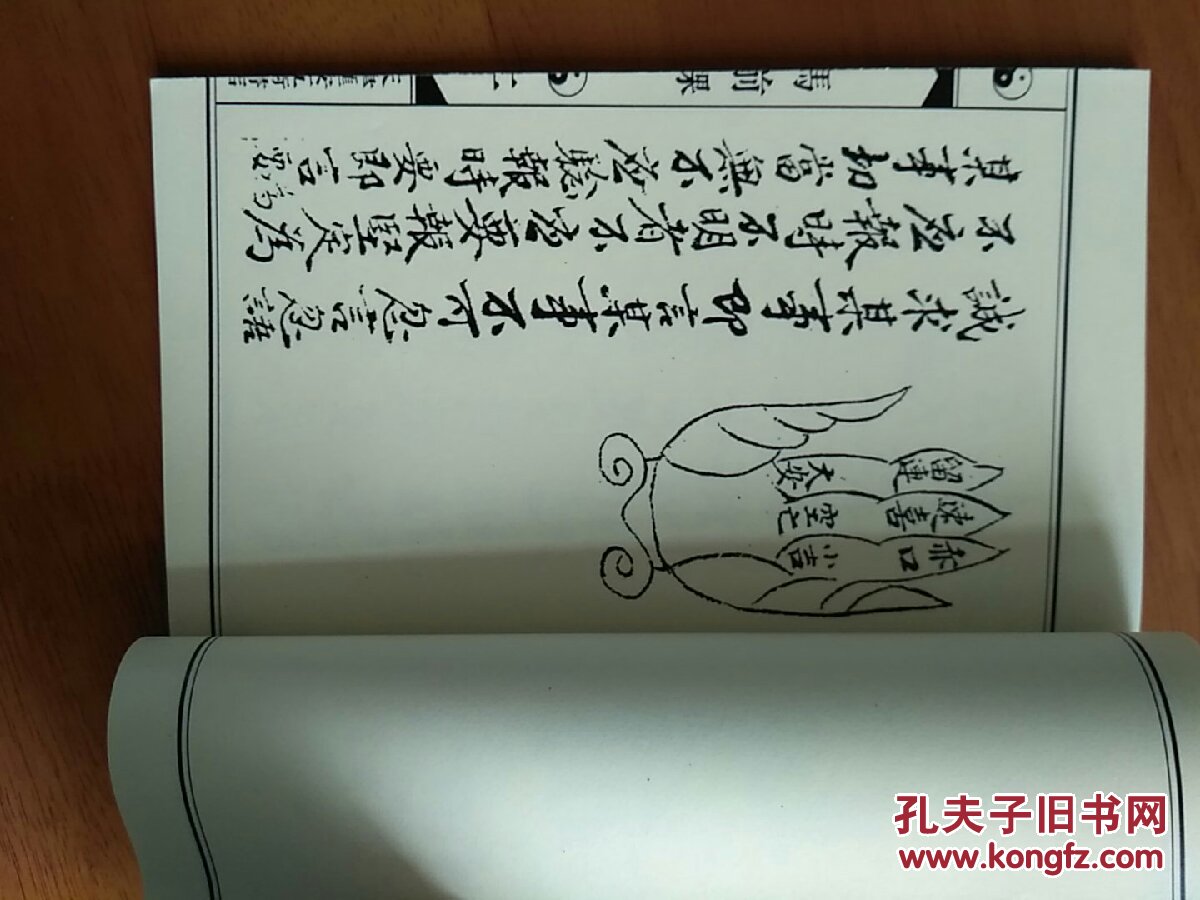 赤口
小吉
速喜
空亡
留連
大安
誠求某事即言某事不可忽言忽語
不應報時不明者不應要報堅定為
某事切當無不應驗報時要即言
馬前果
二
孔夫子旧书网
www.kongfz.com